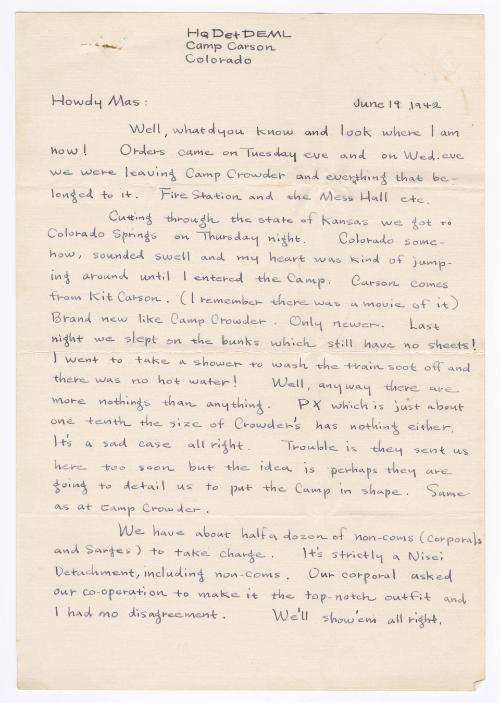 Hq Det DEML
Camp Carson
Colorado
Howdy Mas: June 19, 1942
Well, whatdyou know and look where I am
now! Orders came on Tuesday eve and on Wed. eve
we were leaving Camp Crowder and everthing that be-
longed to it. Fire Station and the Mess Hall etc.
Cutting through the state of Kansas we got to
Colorado Springs on Thursday night. Colorado some-
how, sounded swell and my heart was kind of jump-
ing around until I entered the Camp. Carson comes
from Kit Carson. (I remember there was a movie of it)
Brand new like Camp Crowder. Only newer. Last
night we slept on the bunks which still have no sheets!
I went to take a shower to wash the train soot off and
there was no hot water! Well, anyway there are
more nothings than anything. PX which is just about
one tenth the size of Crowder's has nothing either.
It's a sad case all right. Trouble is they sent us
here too soon but the idea is perhaps they are
going to detail us to put the Camp in shape. Same
as at Camp Crowder.
We have about half a dozon of non-coms (Corporals
and Sarges) to take charge. It's strictly a Nisei
Detachment, including non-coms. Our corporal asked
our co-operation to make it the top-notch outfit and
I had no disagreement. We'll show'em all right.